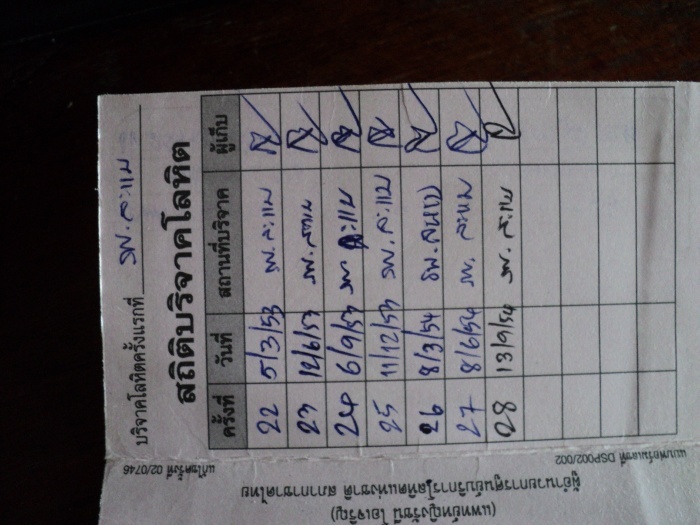 บริจาคโลหิตครั้งแรกที่ รพ.ละแม
สถิติบริจาคโลหิต
ครั้งที่ วันที่ สถานที่บริจาค ผู้เก็บ
22 5/3/53 รพ.ละแม
23 12/6/53 รพ.ละแม
24 6/9/53 รพ ละแม
25 11/12/53 รพ. ละแม
26 8/3/54 รพ.
27 8/6/54 รพ. ละแม
28 13/9/54 รพ. ละแม
แบบฟอร์มเลขที่ DSP002/002 แก้ไขครั้งที่ 02/0746
ผู้อำนวยการศูนย์บริการโลหิตแห่งชาติ สภากาชาดไทย
(แพทย์หญิงรัชนี โอเจริญ)